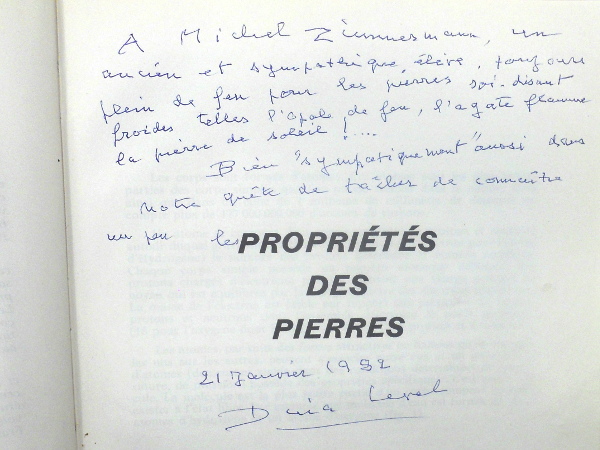 A Michel Zimmermann, un
ancien et sympathique élève, toujours
plein de feu pour les pierres soi-disant
froides telles l'opale de feu, l'agate flamme
la pierre de soleil !....
Bien "sympatiquement" aussi dans
notre quête de tâcher de connaître
un peu les
PROPRIÉTÉS
DES
PIERRES
21 Janvier 1992